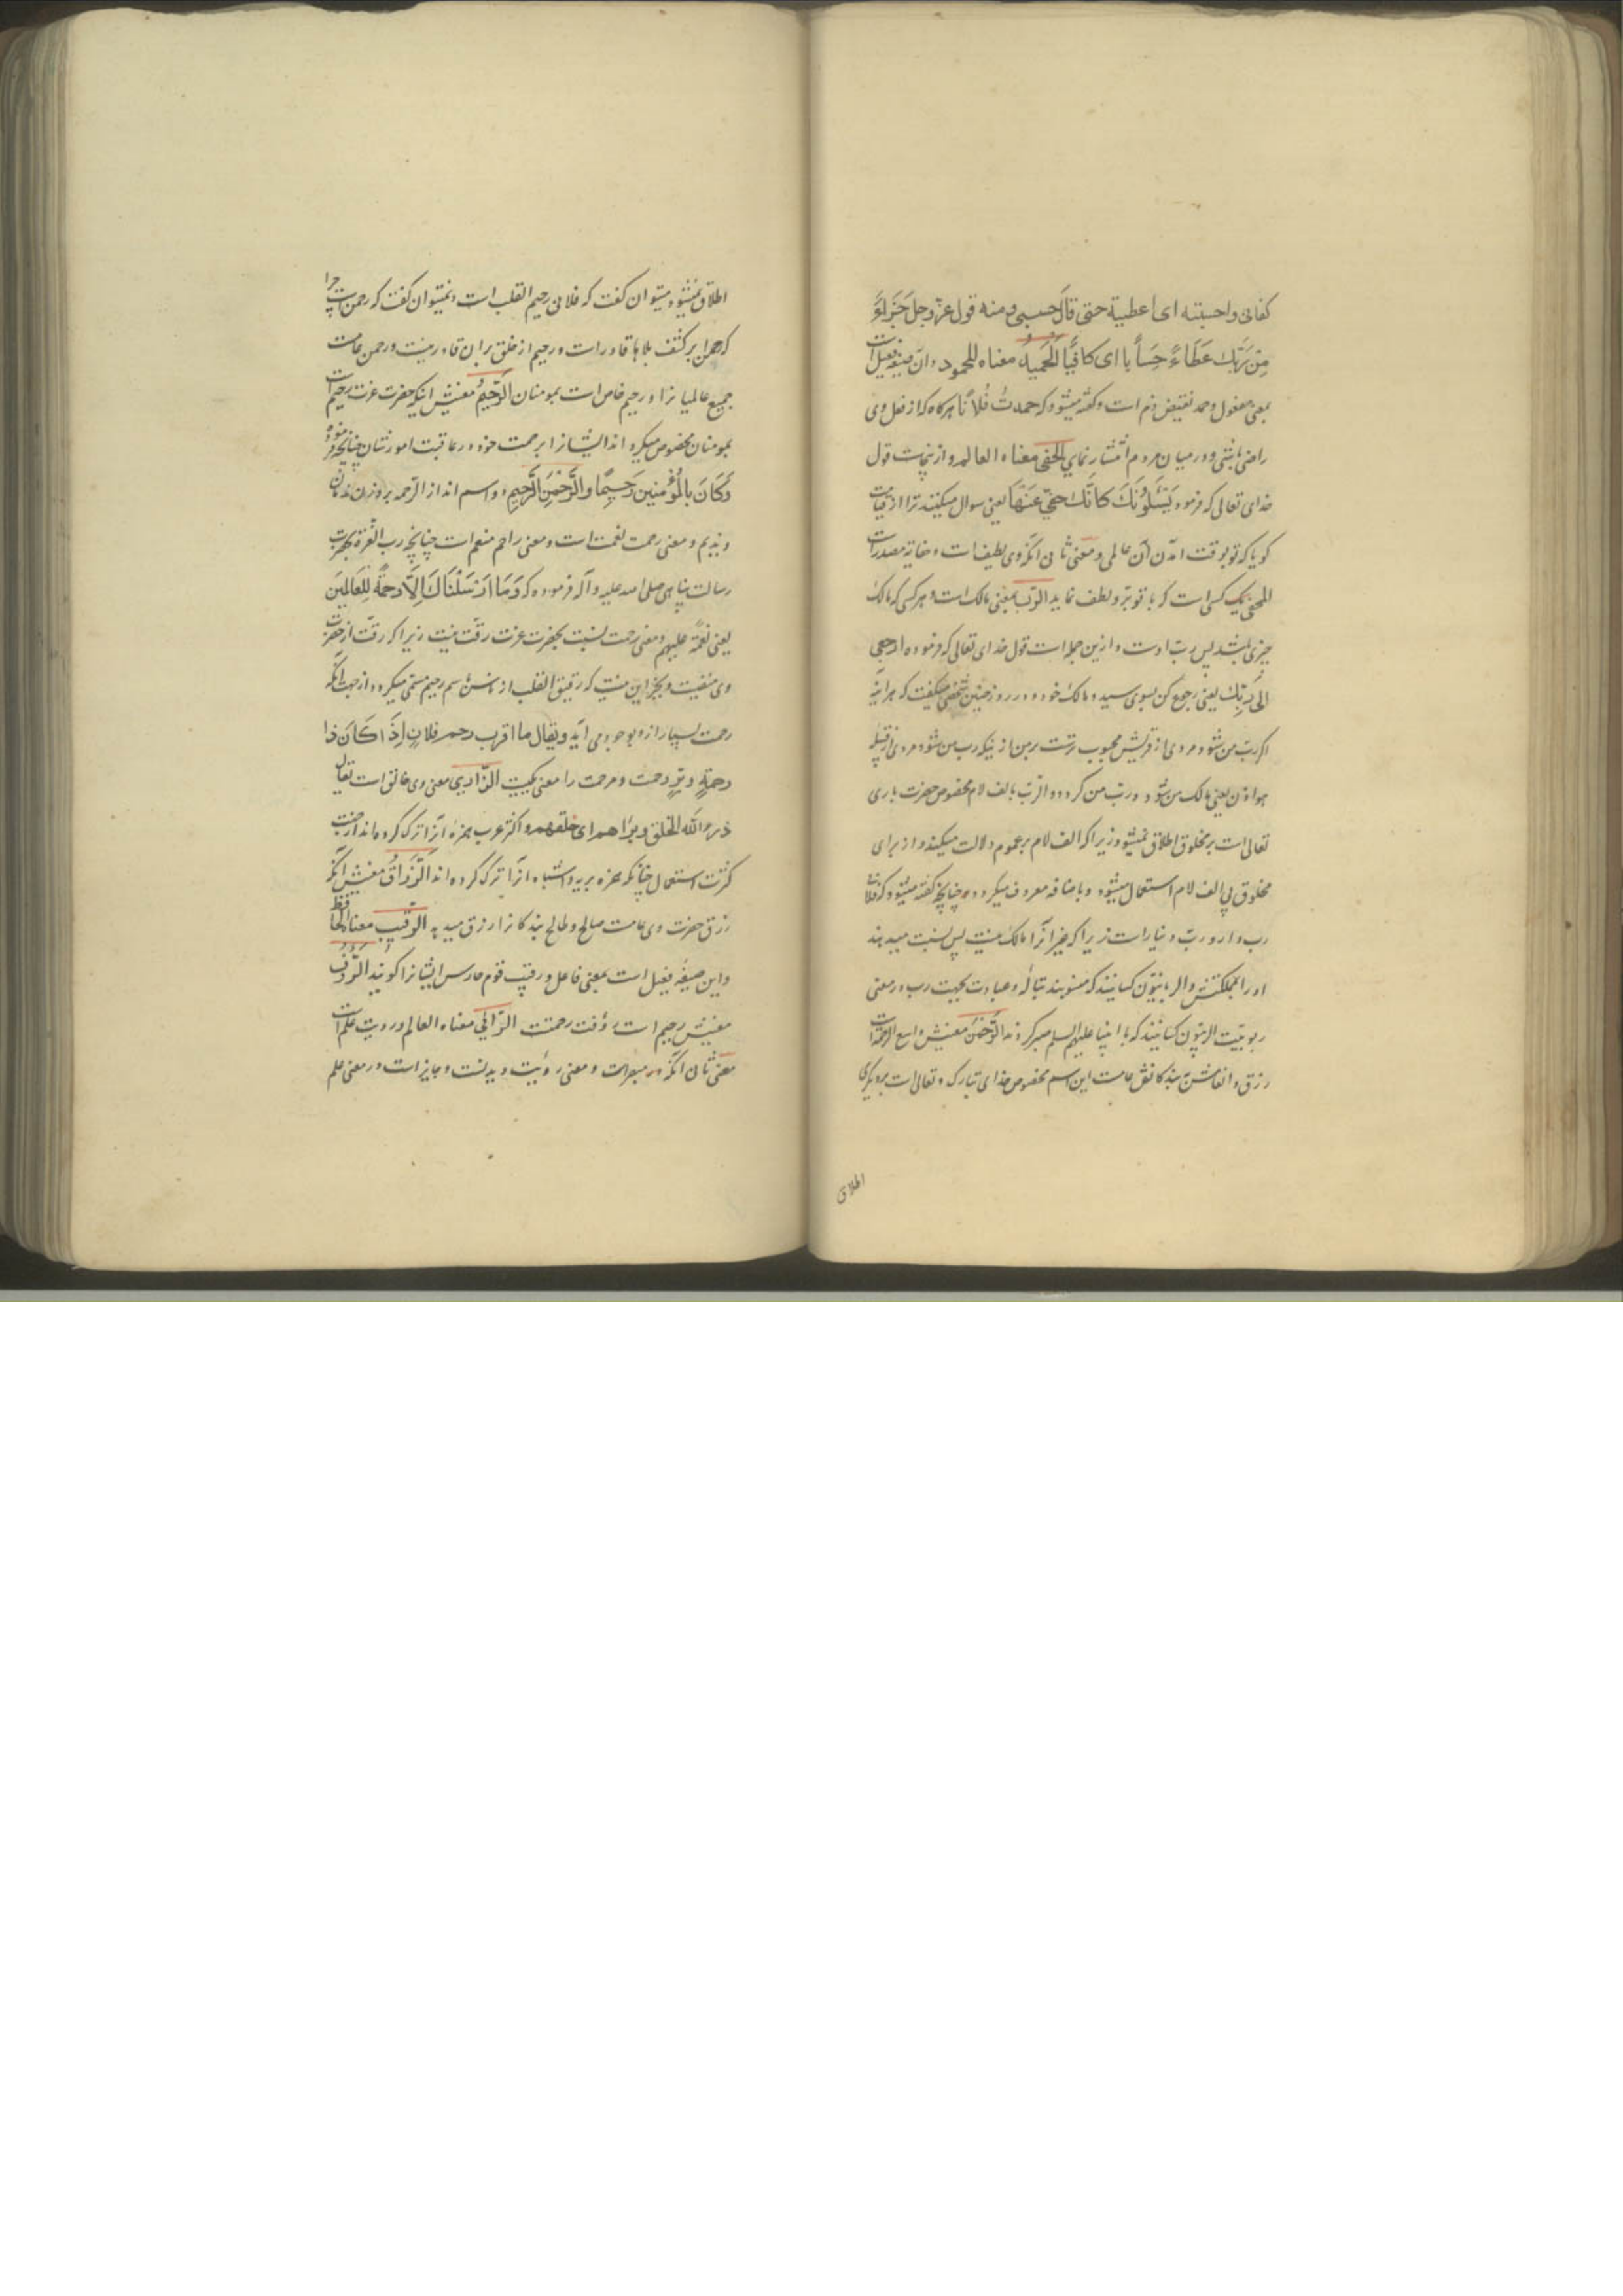 کفانی واحسبته ای اعطیته حتی قال حسبی ومنه قول عزّوجل جَزَاءً
مِن رَّبِّكَ عَطَاءً حِسَاباً ای کافیًا الْحَمِیدُ معناه المحمود وان صیغه فعیل است
بمعنی مفعول وحمد نقیض ذم است وکفته میشود که حمدتُ فُلاناً هرکاه که از فعل وی
راضی باشی ودر میان مردم انتشار نمای الحفی معناه العالم و از ینجاست قول
خدای تعالی که فرمود یَسْئَلُونَكَ كَاَنَّكَ حَفِیٌّ عَنْهَا یعنی سوال میکنند ترا از قیامت
کویا که تو بوقت امدن آن عالمی ومعنی ثانی انکه وی لطیف است وحفایة مصدرات
الحفی یک کسی است که با تو برّ ولطف نماید الرّبّ بمعنی مالک است و هر کسی که مالک
چیزی باشد پس ربّ اوست و از ین جمله است قول خدای تعالی که فرموده ارجعی
الی رَبِّكِ یعنی رجوع کن بسوی سید و مالک خود و در روز حنین شخصی میکفت که هراینه
اکر ربّ من شود مردی از قریش محبوب ترست بر من از ینکه رب من شود مردی از قبیله
هوازن یعنی مالک من شود و ربّ من کردد و الرّبّ بالف لام مخصوص حضرت باری
تعالی است بر مخلوق اطلاق نمیشود زیرا که الف لام بر عموم دلالت میکند و از برای
مخلوق بی الف لام استعمال میشود و باضافه معروف میکردد چنانچه کفته میشود که فلان
رب دار و ربّ دینار است زیرا که غیر انرا مالک نیست پس نسبت میدهند
او را بملکتش والربانیّون کسانیند که منسوبند بتالّه وعبادت بجهت رب در معنی
ربوبیّت الربّیون کسانیند که با انبیا علیهم السلم صبر کردند الرَّحْمٰنُ معنیش واسع الرحمة است
رزق و انعامش بر بندکانش عامست این اسم مخصوص خدای تبارک و تعالی است بر دیکری
اطلاق
اطلاق نمیشود و میتوان کفت که فلانی رحیم القلب است و نمیتوان کفت که رحمن است چرا
که رحمن بر کشف بلاها قادر است ورحیم از خلق بر ان قادر نیست ورحمن عامست
جمیع عالمیانرا و رحیم خاص است بمومنان الرَّحِیمُ معنیش اینکه حضرت عزت رحیم است
بمومنان مخصوص میکرداند ایشانرا برحمت خود در عاقبت امورشان چنانچه فرموده
وَكَانَ بِالْمُؤْمِنِینَ رَحِیمًا والرَّحْمٰنِ الرَّحِیمِ دو اسم اند از الرّحمه بر وزن ندمان
و ندیم و معنی رحمت نعمت است و معنی راحم منعم است چنانچه رب العزّة بحضرت
رسالت پناهی صلی الله علیه وآله فرموده که وَمَا اَرْسَلْنَاكَ اِلَّا رَحْمَةً لِلْعَالَمِینَ
یعنی نعمةً علیهم و معنی رحمت نسبت بحضرت عزت رقّت نیست زیرا که رقّت از حضرت
وی منفیست و بجز این نیست که رقیق القلب از ناس باسم رحیم مسمّی میکردد از جهت انکه
رحمت بسیار از و بوجود می اید ویقال ما اقرب رحم فلان اِذَا كَانَ ذا
رحمةٍ و برٍّ رحمت و مرحمت را معنی یکیست الباری معنی وی خالق است یقال
ذرء الله الخلق وبرَاهم ای خلقهم و اکثر عرب همزهٔ آنرا ترک کرده اند از جهت
کثرت استعمال چنانکه همزه بریه و اشباه انرا ترک کرده اند الرَّزَّاقُ معنیش انکه
رزق حضرت وی عامست صالح و طالح بندکانرا رزق میدهد الرّقیب معناه الحافظ
و این صیغه فعیل است بمعنی فاعل و رقیب قوم حارس ایشانرا کویند الرَّؤُفُ
معنیش رحیم است رؤفت رحمتست الرّائی معناه العالم و رویت علم است
معنی ثانی انکه مبصر است و معنی رؤیت دیدنست و جایز است در معنی علم